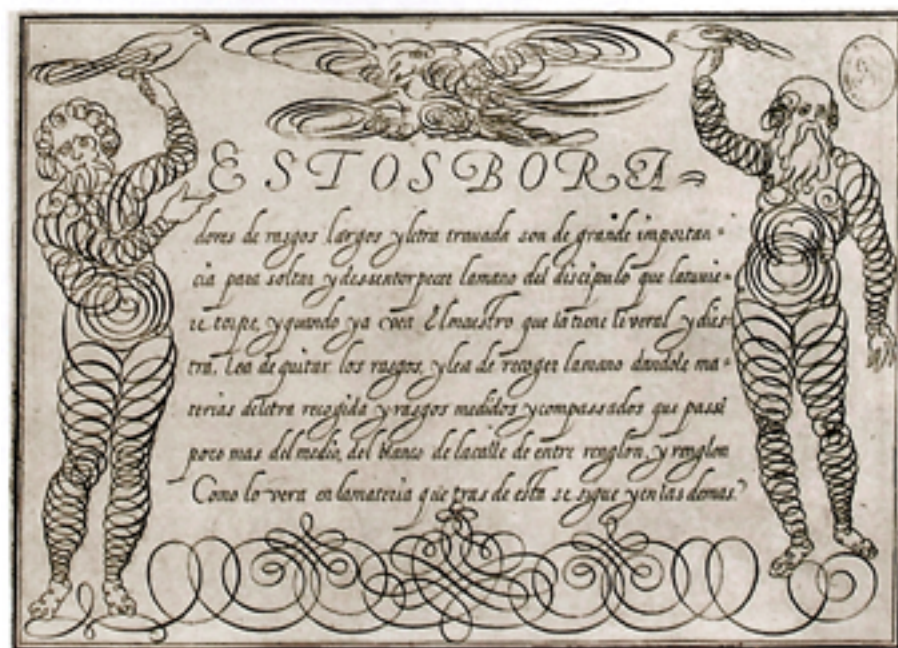 ESTOS BORRA-
dores de rasgos largos y letra travada son de grande importan-
cia para soltar y dessentorpecer lamano del discipulo que latuvie-
re torpe, y quando ya vea el maestro que la tiene liveral y dies-
tra. Lea de quitar los rasgos, ylea de recoger lamano dandole ma-
terias de letra recogida y rasgos medidos y compassados que passẽ
poco mas del medio, del blanco de lacalle de entre renglon, y renglon
Como lo vera en lamateria que tras de esta se sygue yenlas demas.